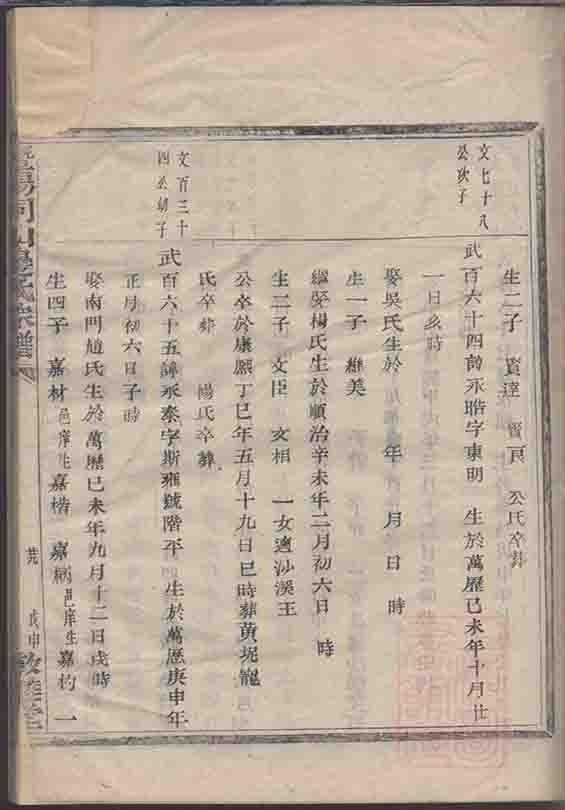 生二子 賢達 賢良 公氏卒葬
文七十八
公次子
武百六十四諱永晧字東明 生於萬歷己未年十月廿
一日亥時
娶吳氏生於 年 月 日 時
生一子 維美
繼娶楊氏生於順治辛未年二月初六日 時
生二子 文臣 文相 一女適沙溪王
公卒於康熙丁巳年五月十九日巳時葬黃坭龍
氏卒葬 楊氏卒葬
文百三十
四公幼子
武百六十五諱永泰字斯雍號階平 生於萬歷庚申年
正月初六日子時
娶南門趙氏生於萬歷己未年九月十二日戌時
生四子 嘉材邑庠生嘉楷 嘉柄邑庠生嘉杓 一
戊申